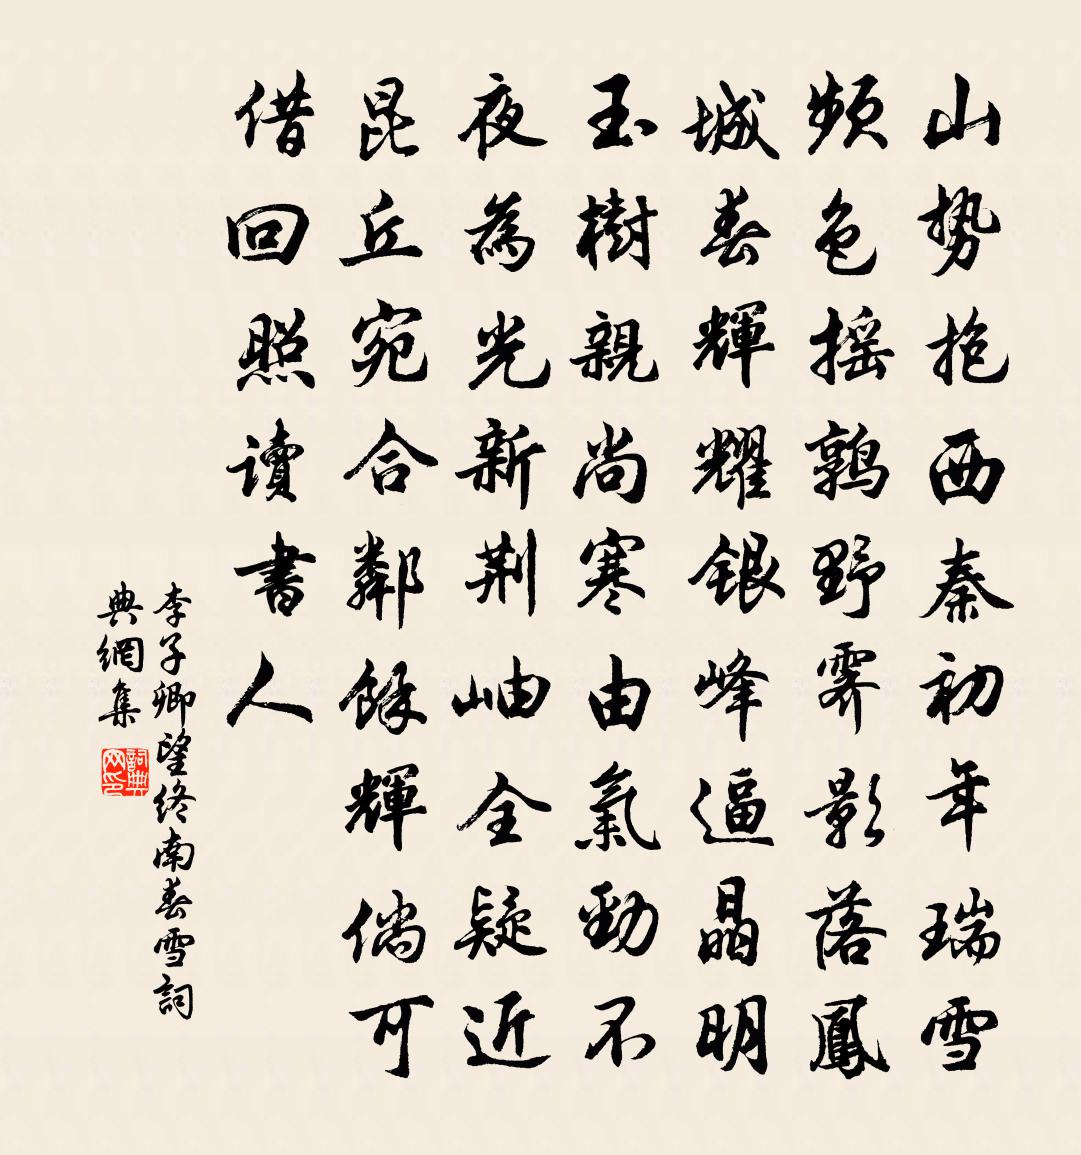 山勢抱西秦初年瑞雪
頻色搖鶉野霽影落鳳
城春輝耀銀峰逼晶明
玉樹親尚寒由氣勁不
夜為光新荆岫全疑近
昆丘宛合鄰餘輝倘可
借回照讀書人
李子卿望終南春雪詞
典網集
詞典
网印